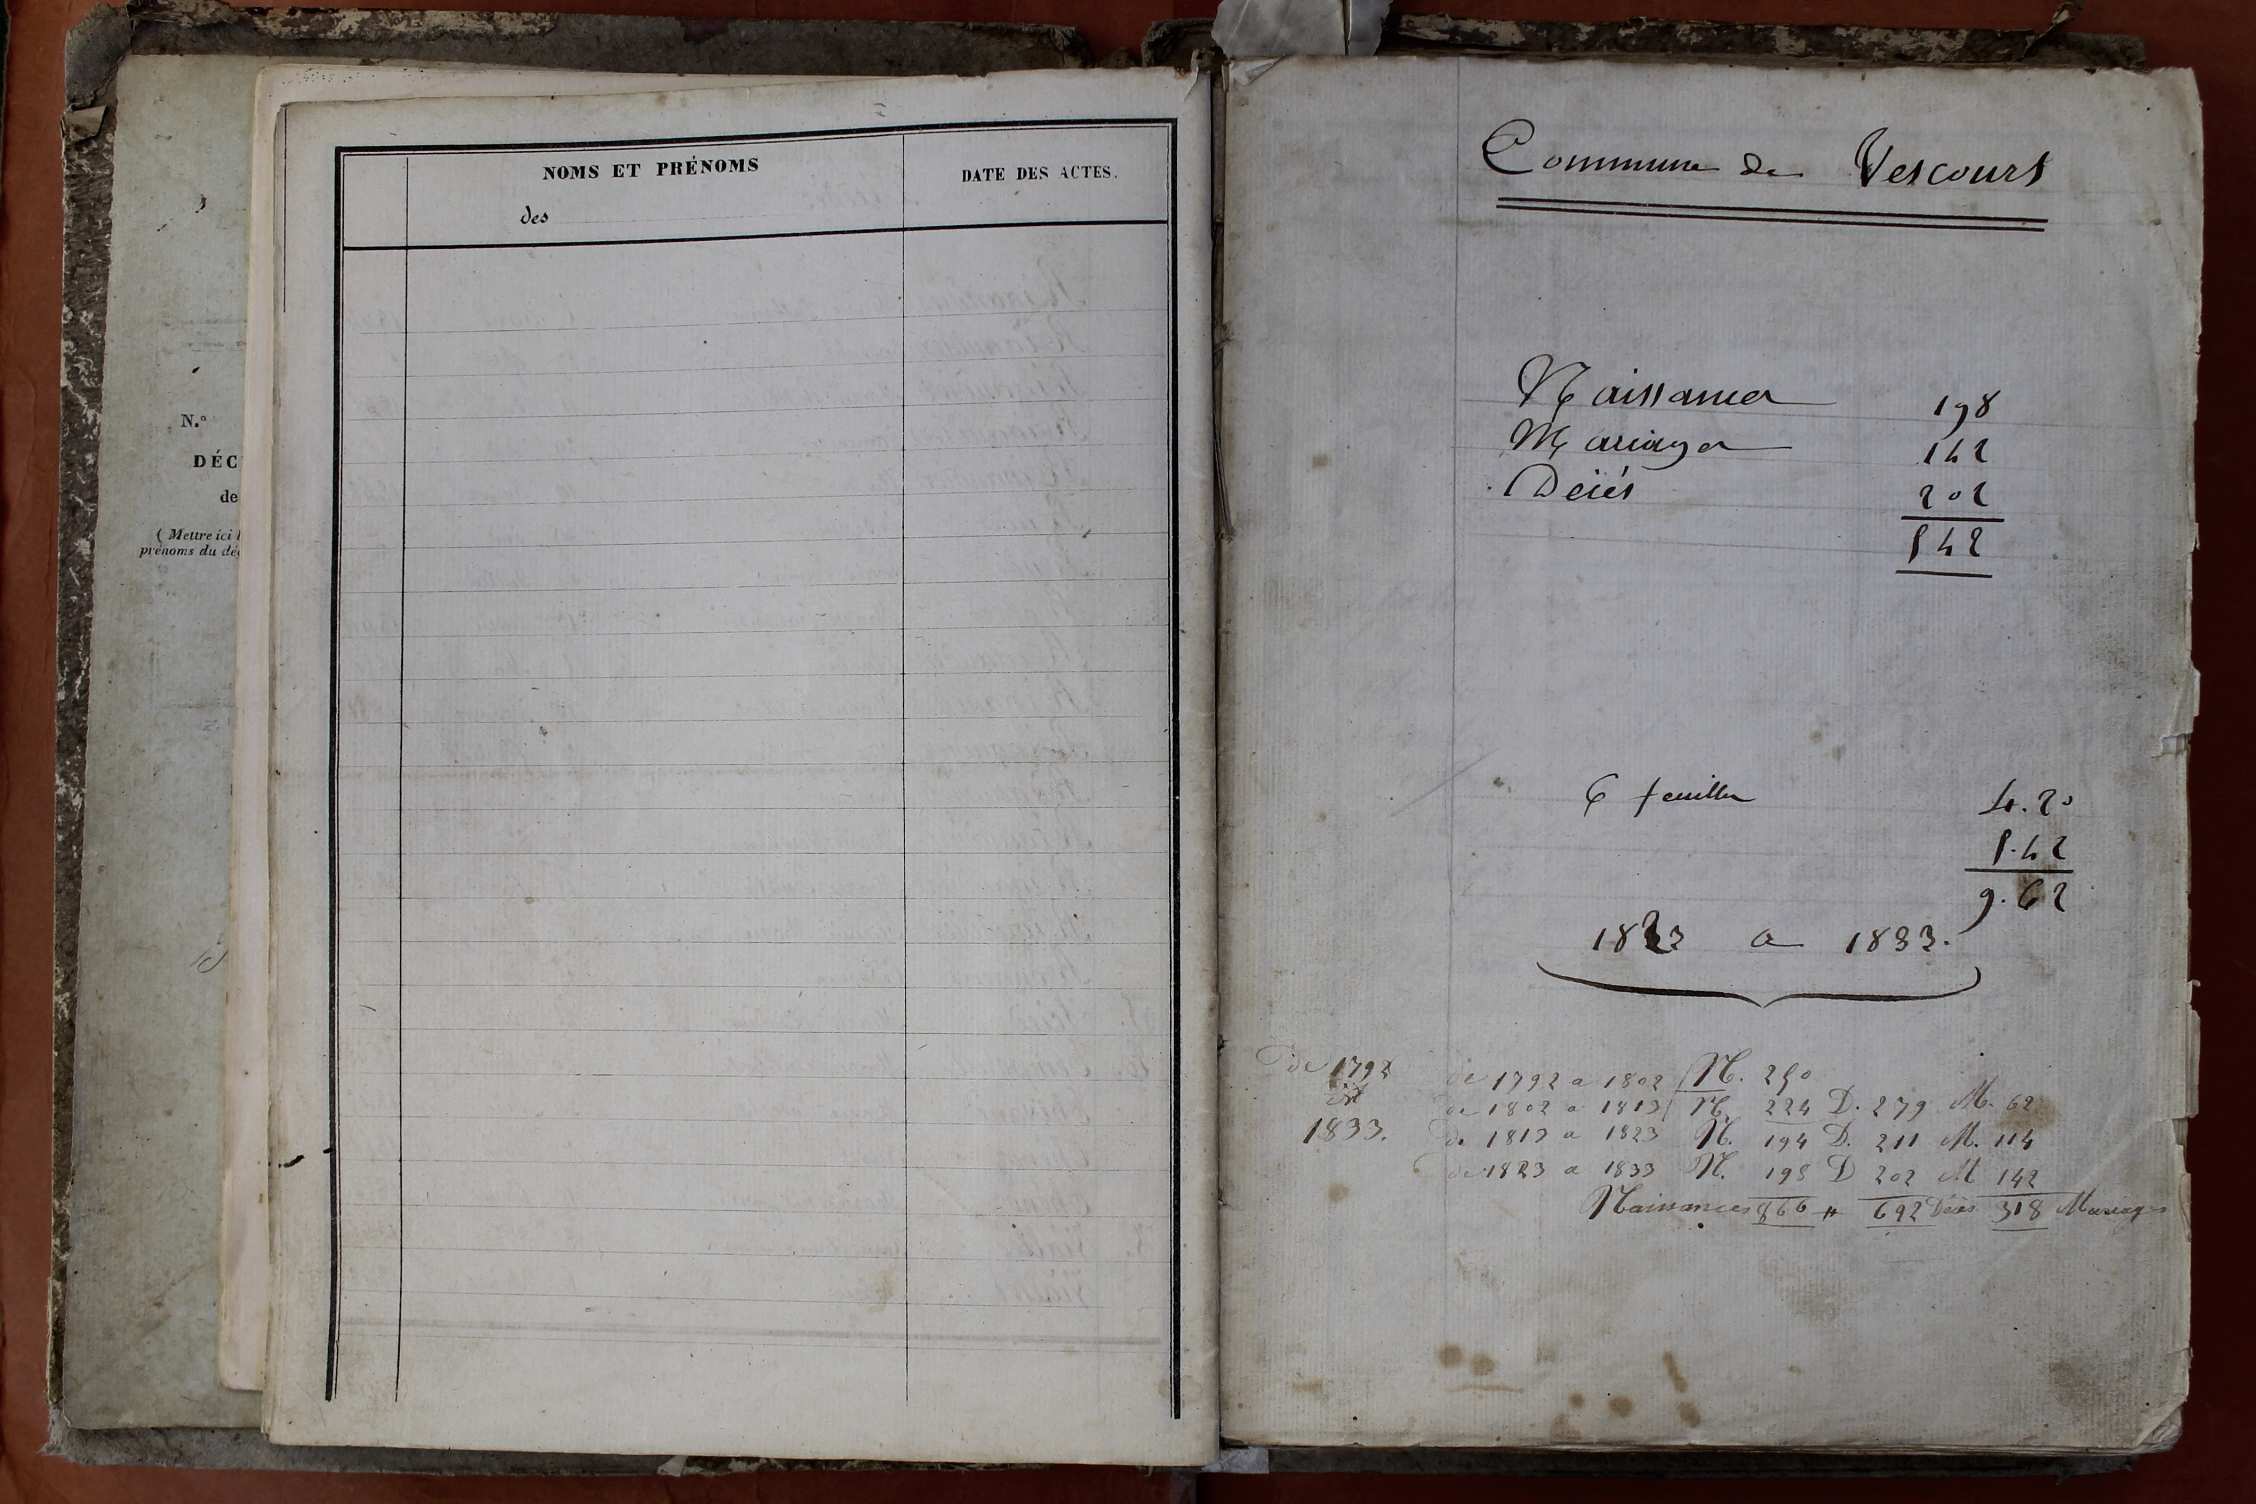 N.o
DÉC
de
(Mettre ici l
prénoms du dé
NOMS ET PRÉNOMS
DATE DES ACTES.
des
Commune de Vescours
Naissances 198
Mariages 142
Décés 202
542
6 feuilles 4.20
5.42
9.62
1823 a 1833.
de 1792
1833.
de 1792 a 1802 N. 250
de 1802 a 1813 N. 224 D. 279 M. 62
de 1813 a 1823 N. 194 D. 211 M. 114
de 1823 a 1833 N. 198 D 202 M 142
Naissances 866 " 692 Décès 318 Mariages